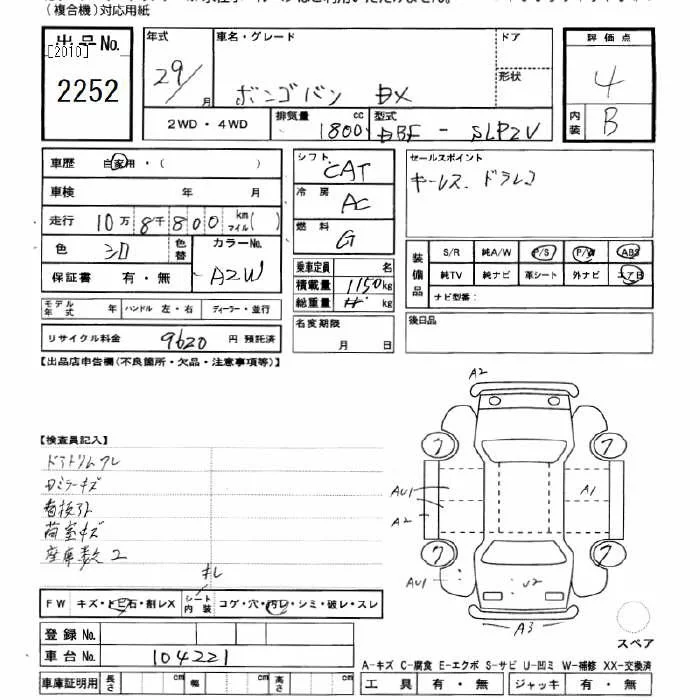 (複合機)対応用紙
出品No.
[2010]
2252
年式
29/
月
車名・グレード
ボンゴバン DX
ドア
形状
2WD・4WD
排気量
1800
cc
型式
DBF - SLP2V
評価点
4
内装
B
車歴 自家用・( )
車検 年 月
走行 10万8千800 km マイル( )
色 シロ
色替
カラーNo.
A2W
保証書 有・無
シフト CAT
冷房 AC
燃料 G
乗車定員 名
積載量 1150kg
総重量 kg
名変期限
月 日
モデル年式 年 ハンドル 左・右 ディーラー・並行
リサイクル料金 9620 円 預託済
セールスポイント
キーレス ドラレコ
装備品
S/R 純A/W P/S P/W ABS
純TV 純ナビ 革シート 外ナビ エアB
ナビ型番:
後日品
【出品店申告欄(不良箇所・欠品・注意事項等)】
【検査員記入】
ドアトリムクレ
ロミラーキズ
荷室キズ
座庫数 2
キレ
A2
AU1
A2
A1
AU1
U2
A3
FW キズ・トビ石・割レX シート内装 コゲ・穴・汚レ・シミ・破レ・スレ
登録No.
車台No. 104221
スペア
A-キズ C-腐食 E-エクボ S-サビ U-凹ミ W-補修 XX-交換済
車庫証明用 長さ cm 幅 cm 高さ cm
工具 有・無 ジャッキ 有・無